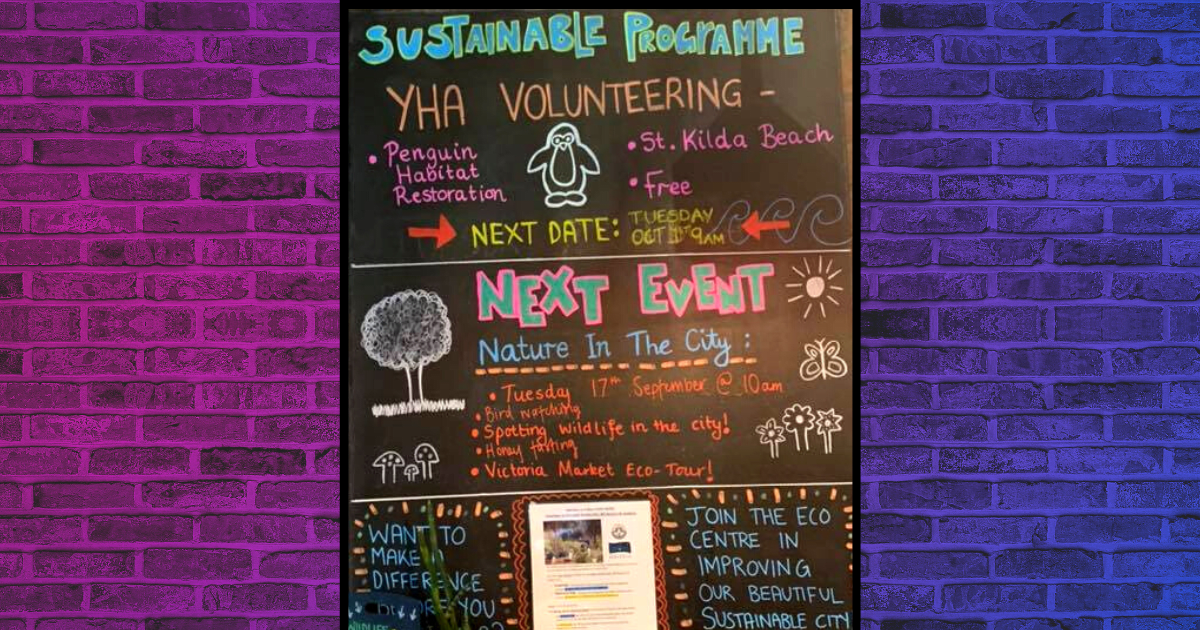 SUSTAINABLE PROGRAMME
YHA VOLUNTEERING -
• Penguin
Habitat
Restoration
• St. Kilda Beach
• Free
NEXT DATE: TUESDAY
OCT 1ST 9AM
NEXT EVENT
Nature In The City:
• Tuesday 17th September @ 10am
• Bird watching
• Spotting wildlife in the city!
• Honey tasting
• Victoria Market Eco-Tour!
WANT TO
MAKE A
DIFFERENCE
YOU
JOIN THE ECO
CENTRE IN
IMPROVING
OUR BEAUTIFUL
SUSTAINABLE CITY